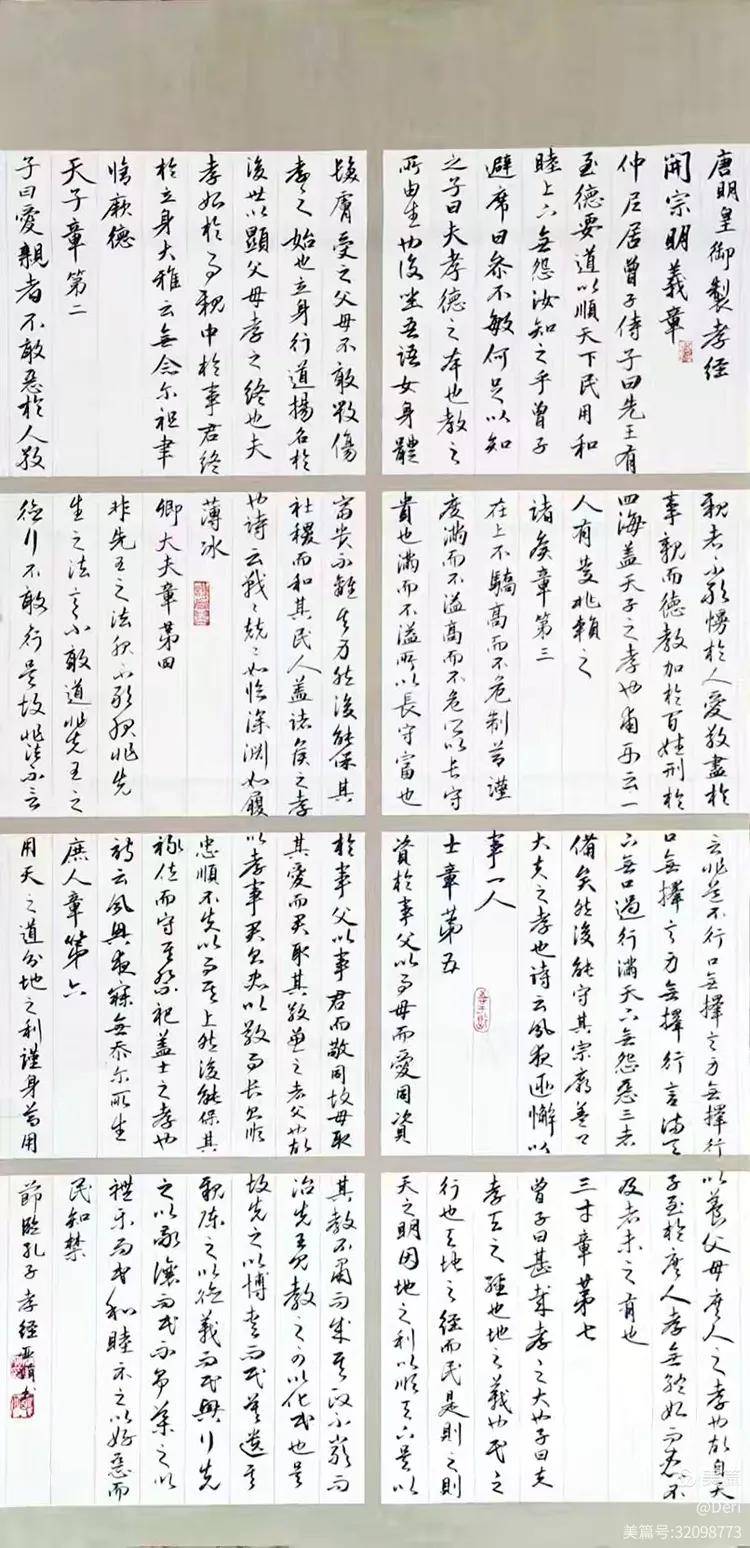 唐明皇御製孝经
開宗明義章
仲尼居曾子侍子曰先王有
至德要道以順天下民用和
睦上下無怨汝知之乎曾子
避席曰參不敏何足以知
之子曰夫孝德之本也教之
所由生也復坐吾語女身體
髮膚受之父母不敢毀傷
孝之始也立身行道揚名於
後世以顯父母孝之終也夫
孝始於事親中於事君終
於立身大雅云無念尔祖聿
脩厥德
天子章第二
子曰愛親者不敢惡於人敬
親者不敢慢於人愛敬盡於
事親而德教加於百姓刑於
四海盖天子之孝也甫刑云一
人有慶兆賴之
諸矦章第三
在上不驕高而不危制节謹
度滿而不溢高而不危所以长守
貴也滿而不溢所以長守富也
富贵不離其身然後能保其
社稷而和其民人盖诸矦之孝
也诗云戰々兢々如临深淵如履
薄冰
卿大夫章第四
非先王之法服不敢服非先
王之法言不敢道非先王之
德行不敢行是故非法不言
云非道不行口無擇言身無擇行
口無擇言身無擇行言满天
下無口過行滿天下無怨惡三者
備矣然後能守其宗廟盖々
大夫之孝也诗云夙夜匪懈以
事一人
士章第五
資於事父以事母而愛同資
於事父以事君而敬同故母取
其爱而君取其敬兼之者父也故
以孝事君則忠以敬事长則順
忠順不失以事其上然後能保其
祿位而守其祭祀盖士之孝也
詩云夙興夜寐無忝尔所生
庶人章第六
用天之道分地之利謹身节用
以養父母庶人之孝也故自天
子至於庶人孝無終始而患不
及者未之有也
三才章第七
曾子曰甚哉孝之大也子曰夫
孝天之經也地之義也民之
行也天地之经而民是則之則
天之明因地之利以順天下是以
其教不肅而成其政不嚴而
治先王見教之可以化民也是
故先之以博爱而民莫遺其
親陈之以德義而民興行先
之以敬讓而民不争導之以
禮乐而民和睦示之以好惡而
民知禁
節臨孔子孝经
美篇
@Deri
美篇号:32098773